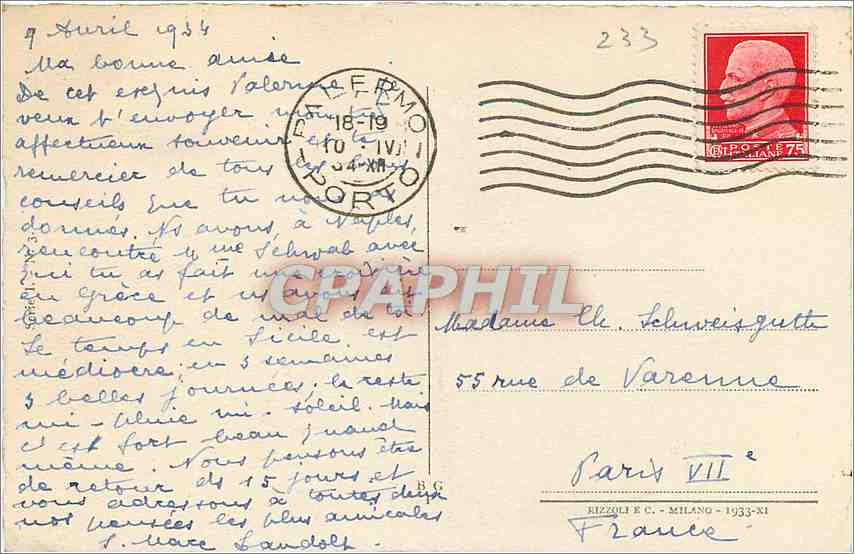 9 Avril 1934
Ma bonne amie
De cet exquis Palerme je
veux t'envoyer mon
affectueux souvenir et te
remercier de tous les bons
conseils que tu nous as
donnés. Ns avons, à Naples,
rencontré Mme Schwab avec
qui tu as fait une croisière
en Grèce et ns avons dit
beaucoup de mal de toi
Le temps en Sicile est
médiocre; en 3 semaines
3 belles journées, le reste
mi-pluie mi-soleil. Mais
c'est fort beau quand
même. Nous pensons être
de retour ds 15 jours et
vous adressons à toutes deux
nos pensées les plus amicales
S. Marc Landolt.
233
PALERMO PORTO
18-19
10 IV
34-XII
POSTE
ITALIANE 75
CPAPHIL
Madame Ch. Schweisgutt
55 rue de Varenne
Paris VIIe
France
B G
RIZZOLI E C. - MILANO - 1933-XI